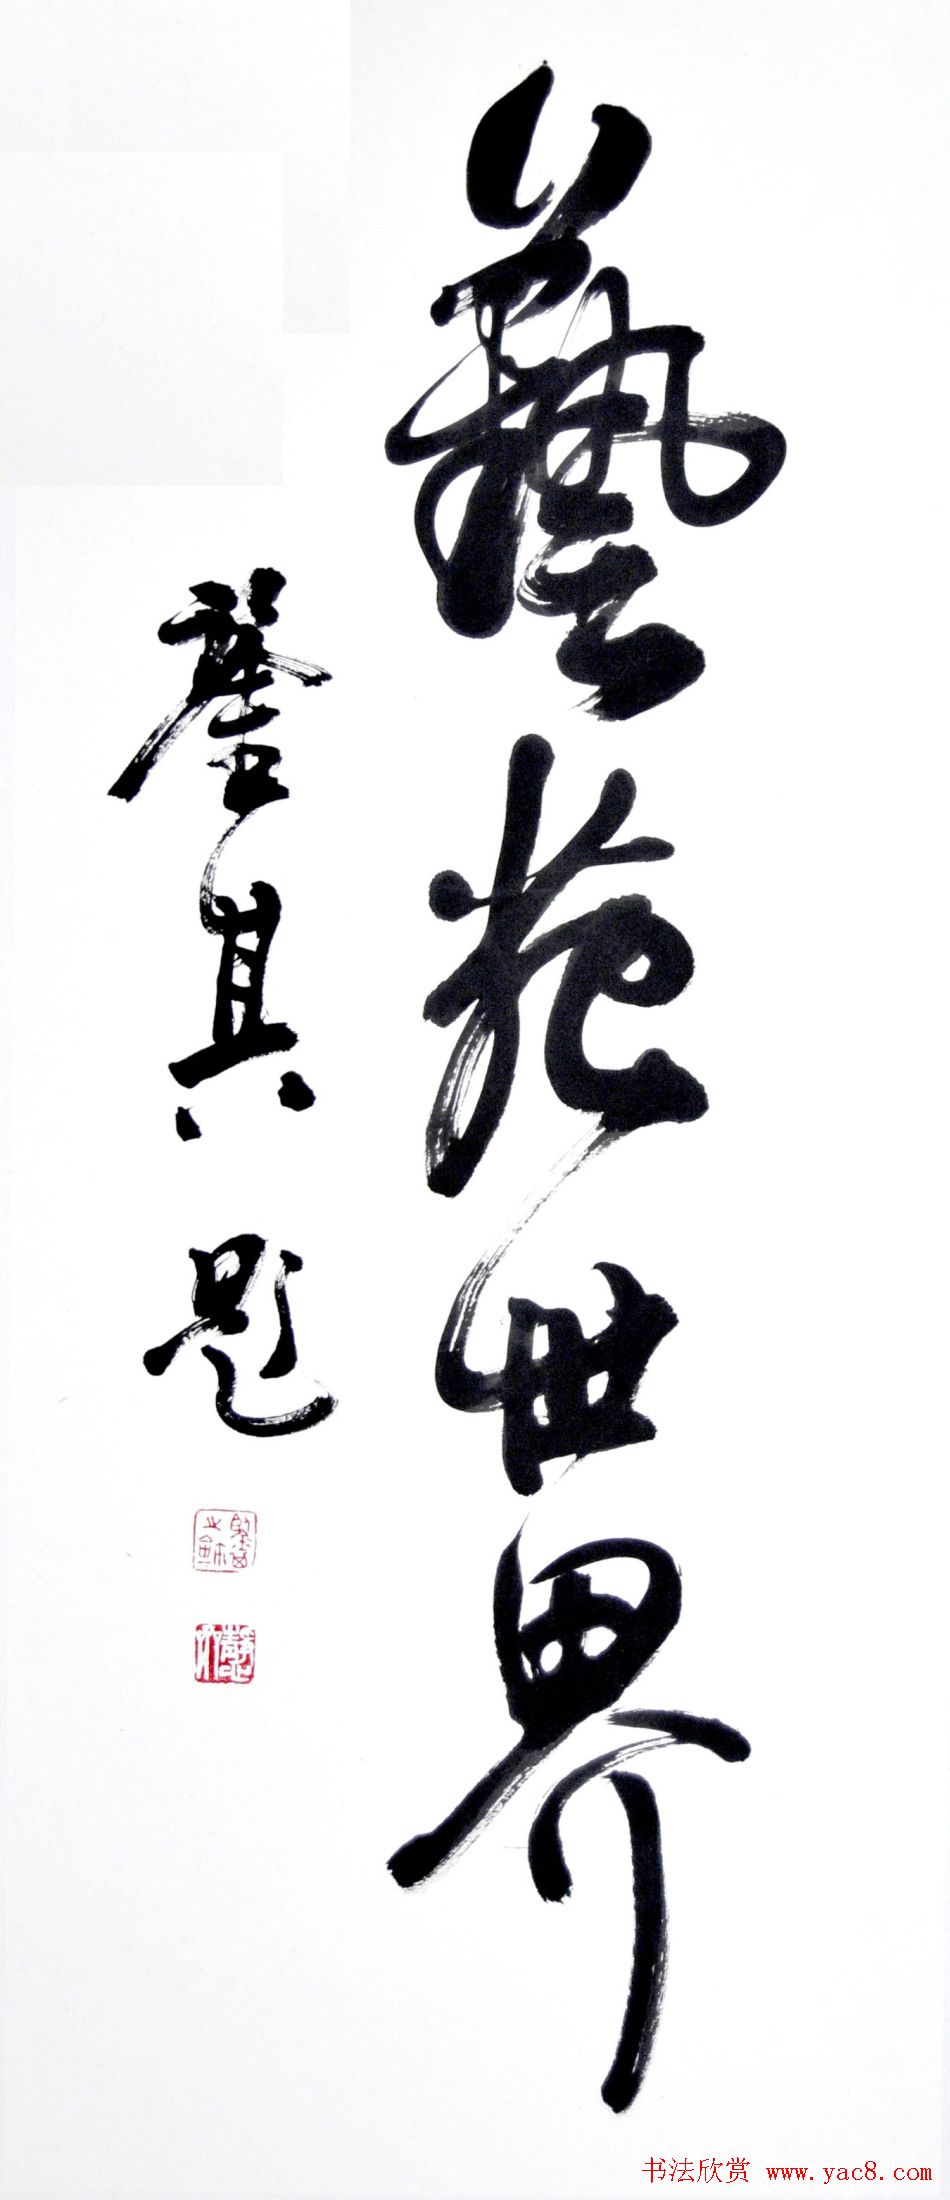 藝苑世界
其題
书法欣赏 www.yac8.com